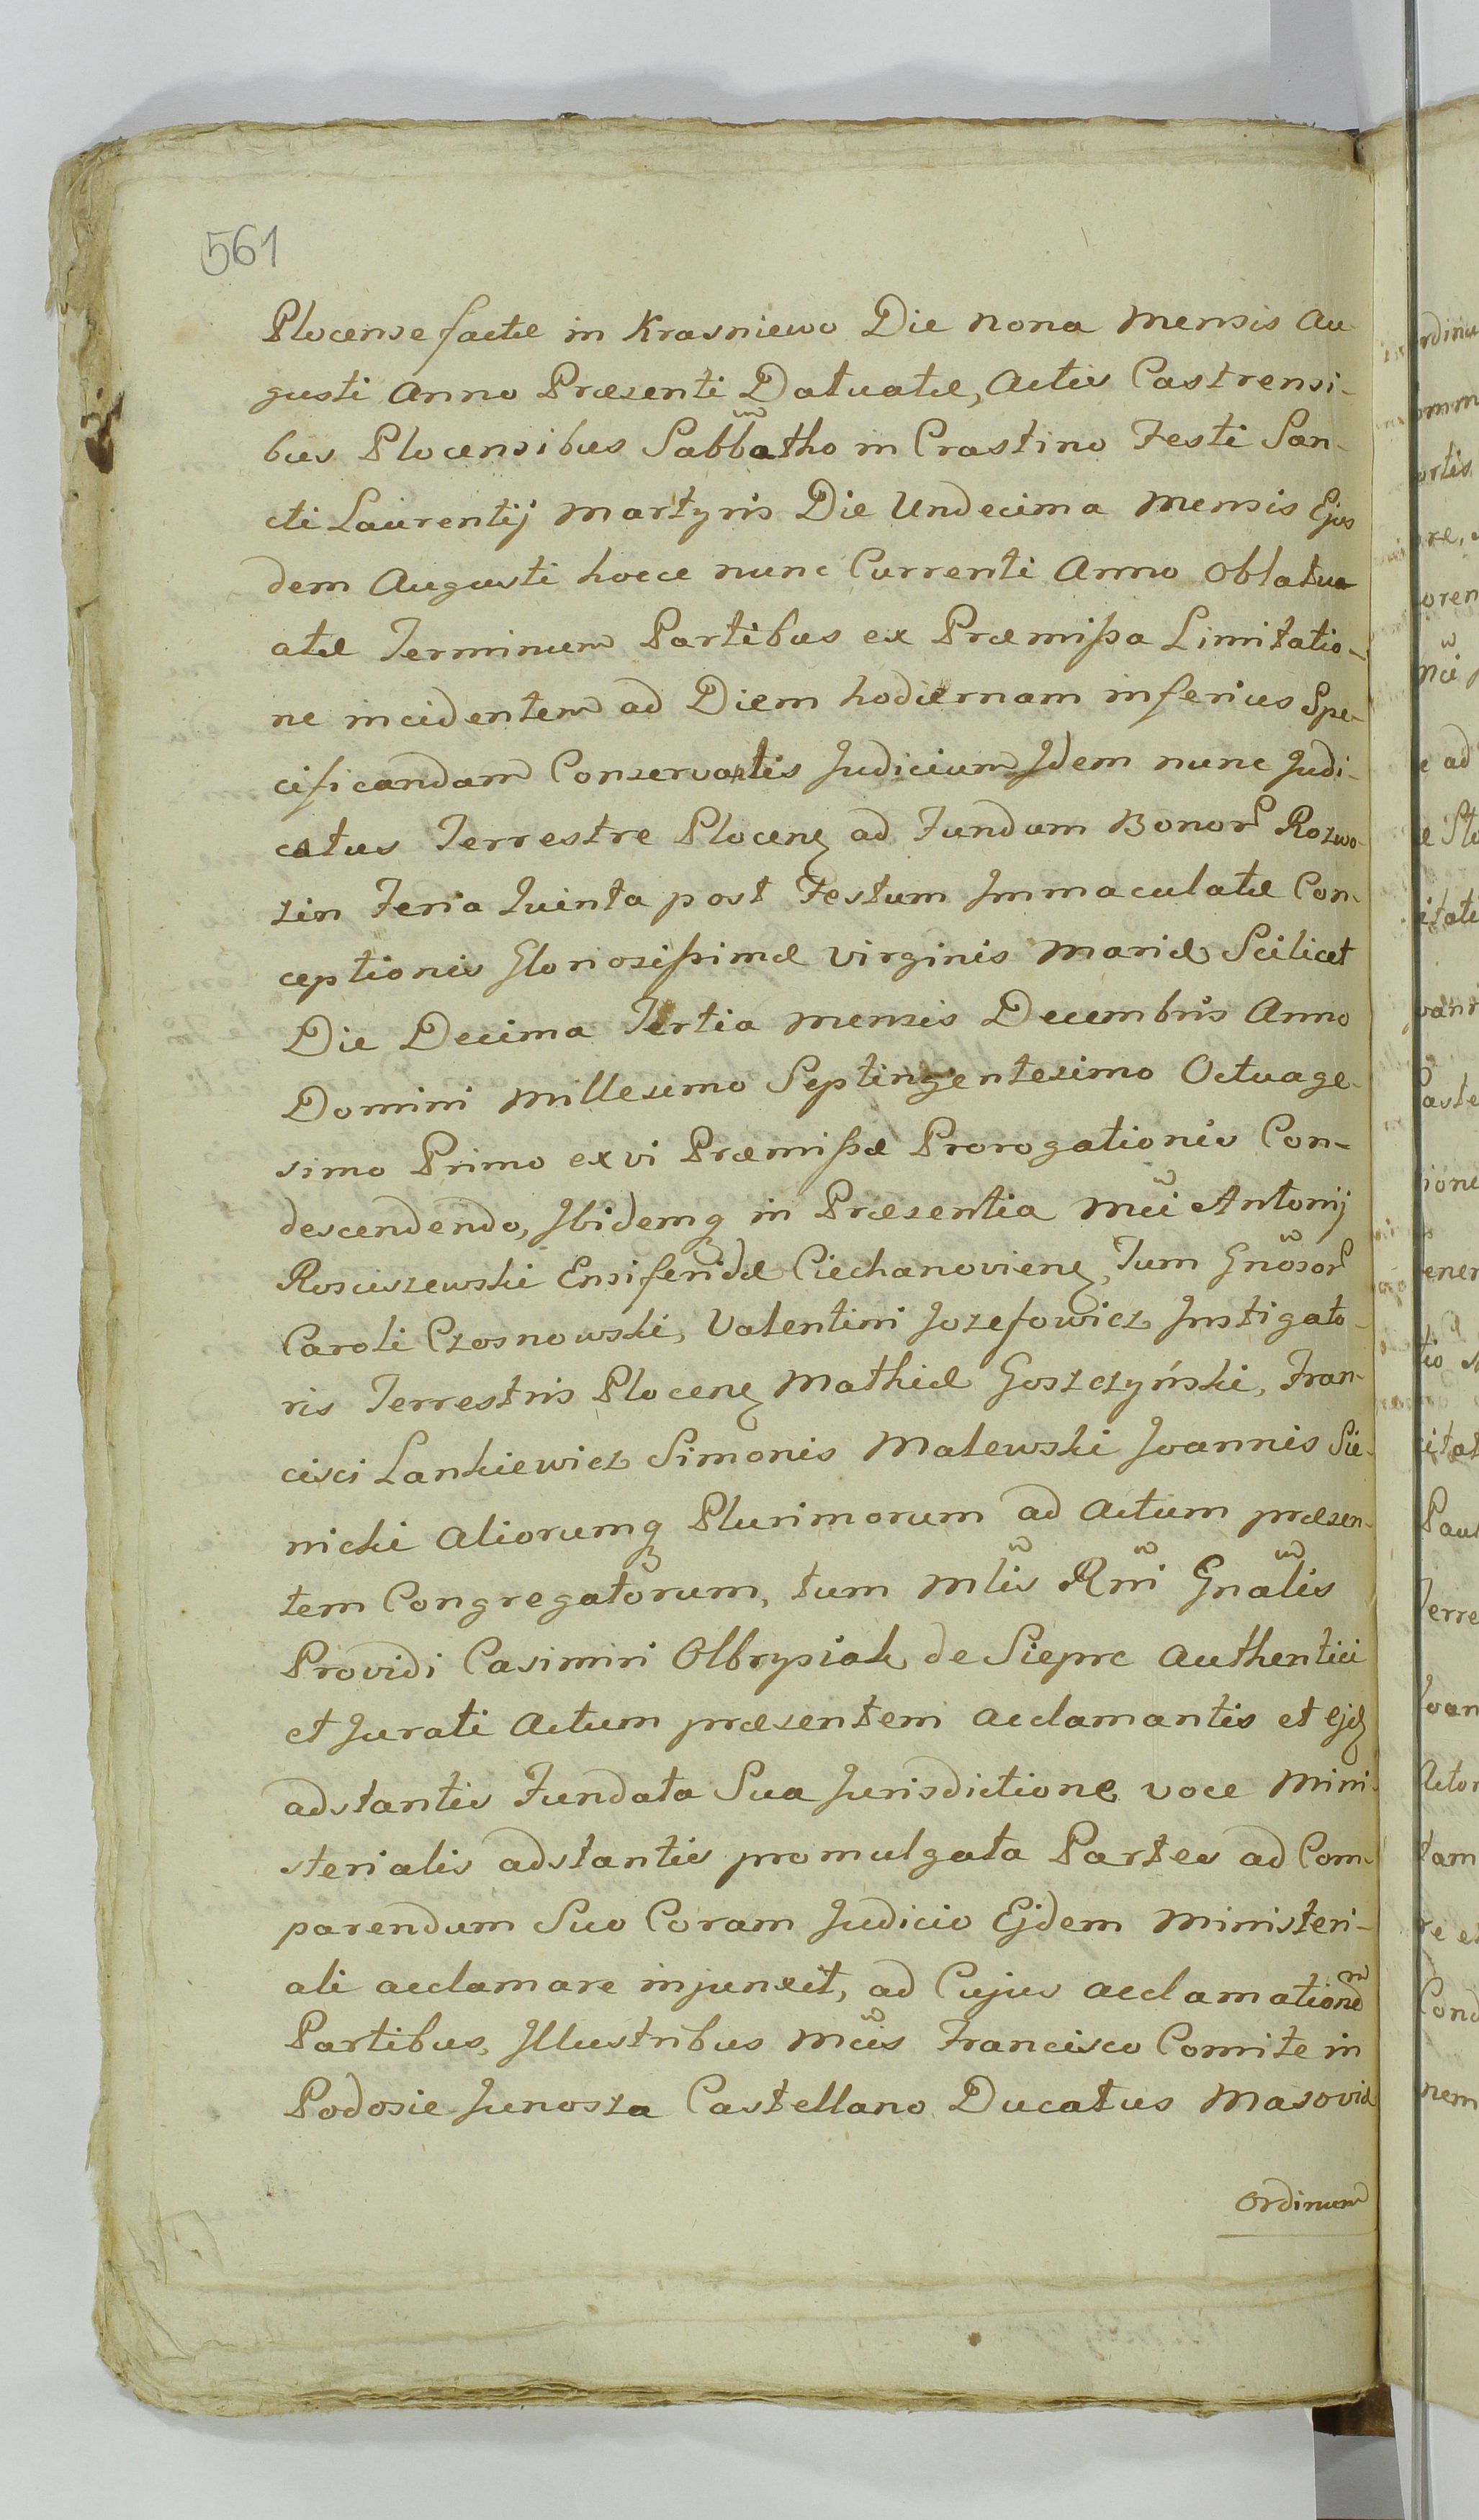 561
Plocense factæ in Krasniewo Die nona Mensis Au-
gusti Anno Præsenti Datuatæ, Actis Castrensi-
bus Plocensibus Sabbatho in Crastino Festi San-
cti Laurentij Martyris Die Undecima Mensis Ejus
dem Augusti hocce nunc Currenti Anno Oblatu
atæ Terminum Partibus ex Præmißa Limitatio-
ne incidentem ad Diem hodiernam inferius Spe-
cificandam Conservatis Judicium Idem nunc Judi-
catus Terrestre Plocen ad Fundum Bonor Rozwo-
zin Feria Quinta post Festum Immaculatæ Con-
ceptionis Gloriosißimæ Virginis Mariæ Scilicet
Die Decima Tertia Mensis Decembris Anno
Domini Millesimo Septingentesimo Octuage-
simo Primo ex vi Præmißæ Prorogationis Con-
descendendo, Ibidemq in Præsentia Mci Antonij
Rosciszewski Ensiferidæ Ciechanovien, Tum Gnosor
Caroli Czosnowski, Valentini Jozefowicz Instigato-
ris Terrestris Plocen Mathiæ Goszczyński, Fran-
cisci Lankiewicz Simonis Malewski Joannis Sie-
nicki Aliorumq Plurimorum ad Actum præsen-
tem Congregatorum, tum Mlis Rni Gnalis
Providi Casimiri Olbrysiak de Sieprc Authentici
et Jurati Actum præsentem acclamantis et ejd
adstantis Fundata Sua Jurisdictione voce Mini-
sterialis adstantis promulgata Partes ad Com-
parendum Suo Coram Judicio Ejdem Ministeri-
ali acclamare injunxit, ad Cujus acclamationem
Partibus, Illustribus Mcis Francisco Comite in
Podosie Junosza Castellano Ducatus Masoviæ
Ordinum